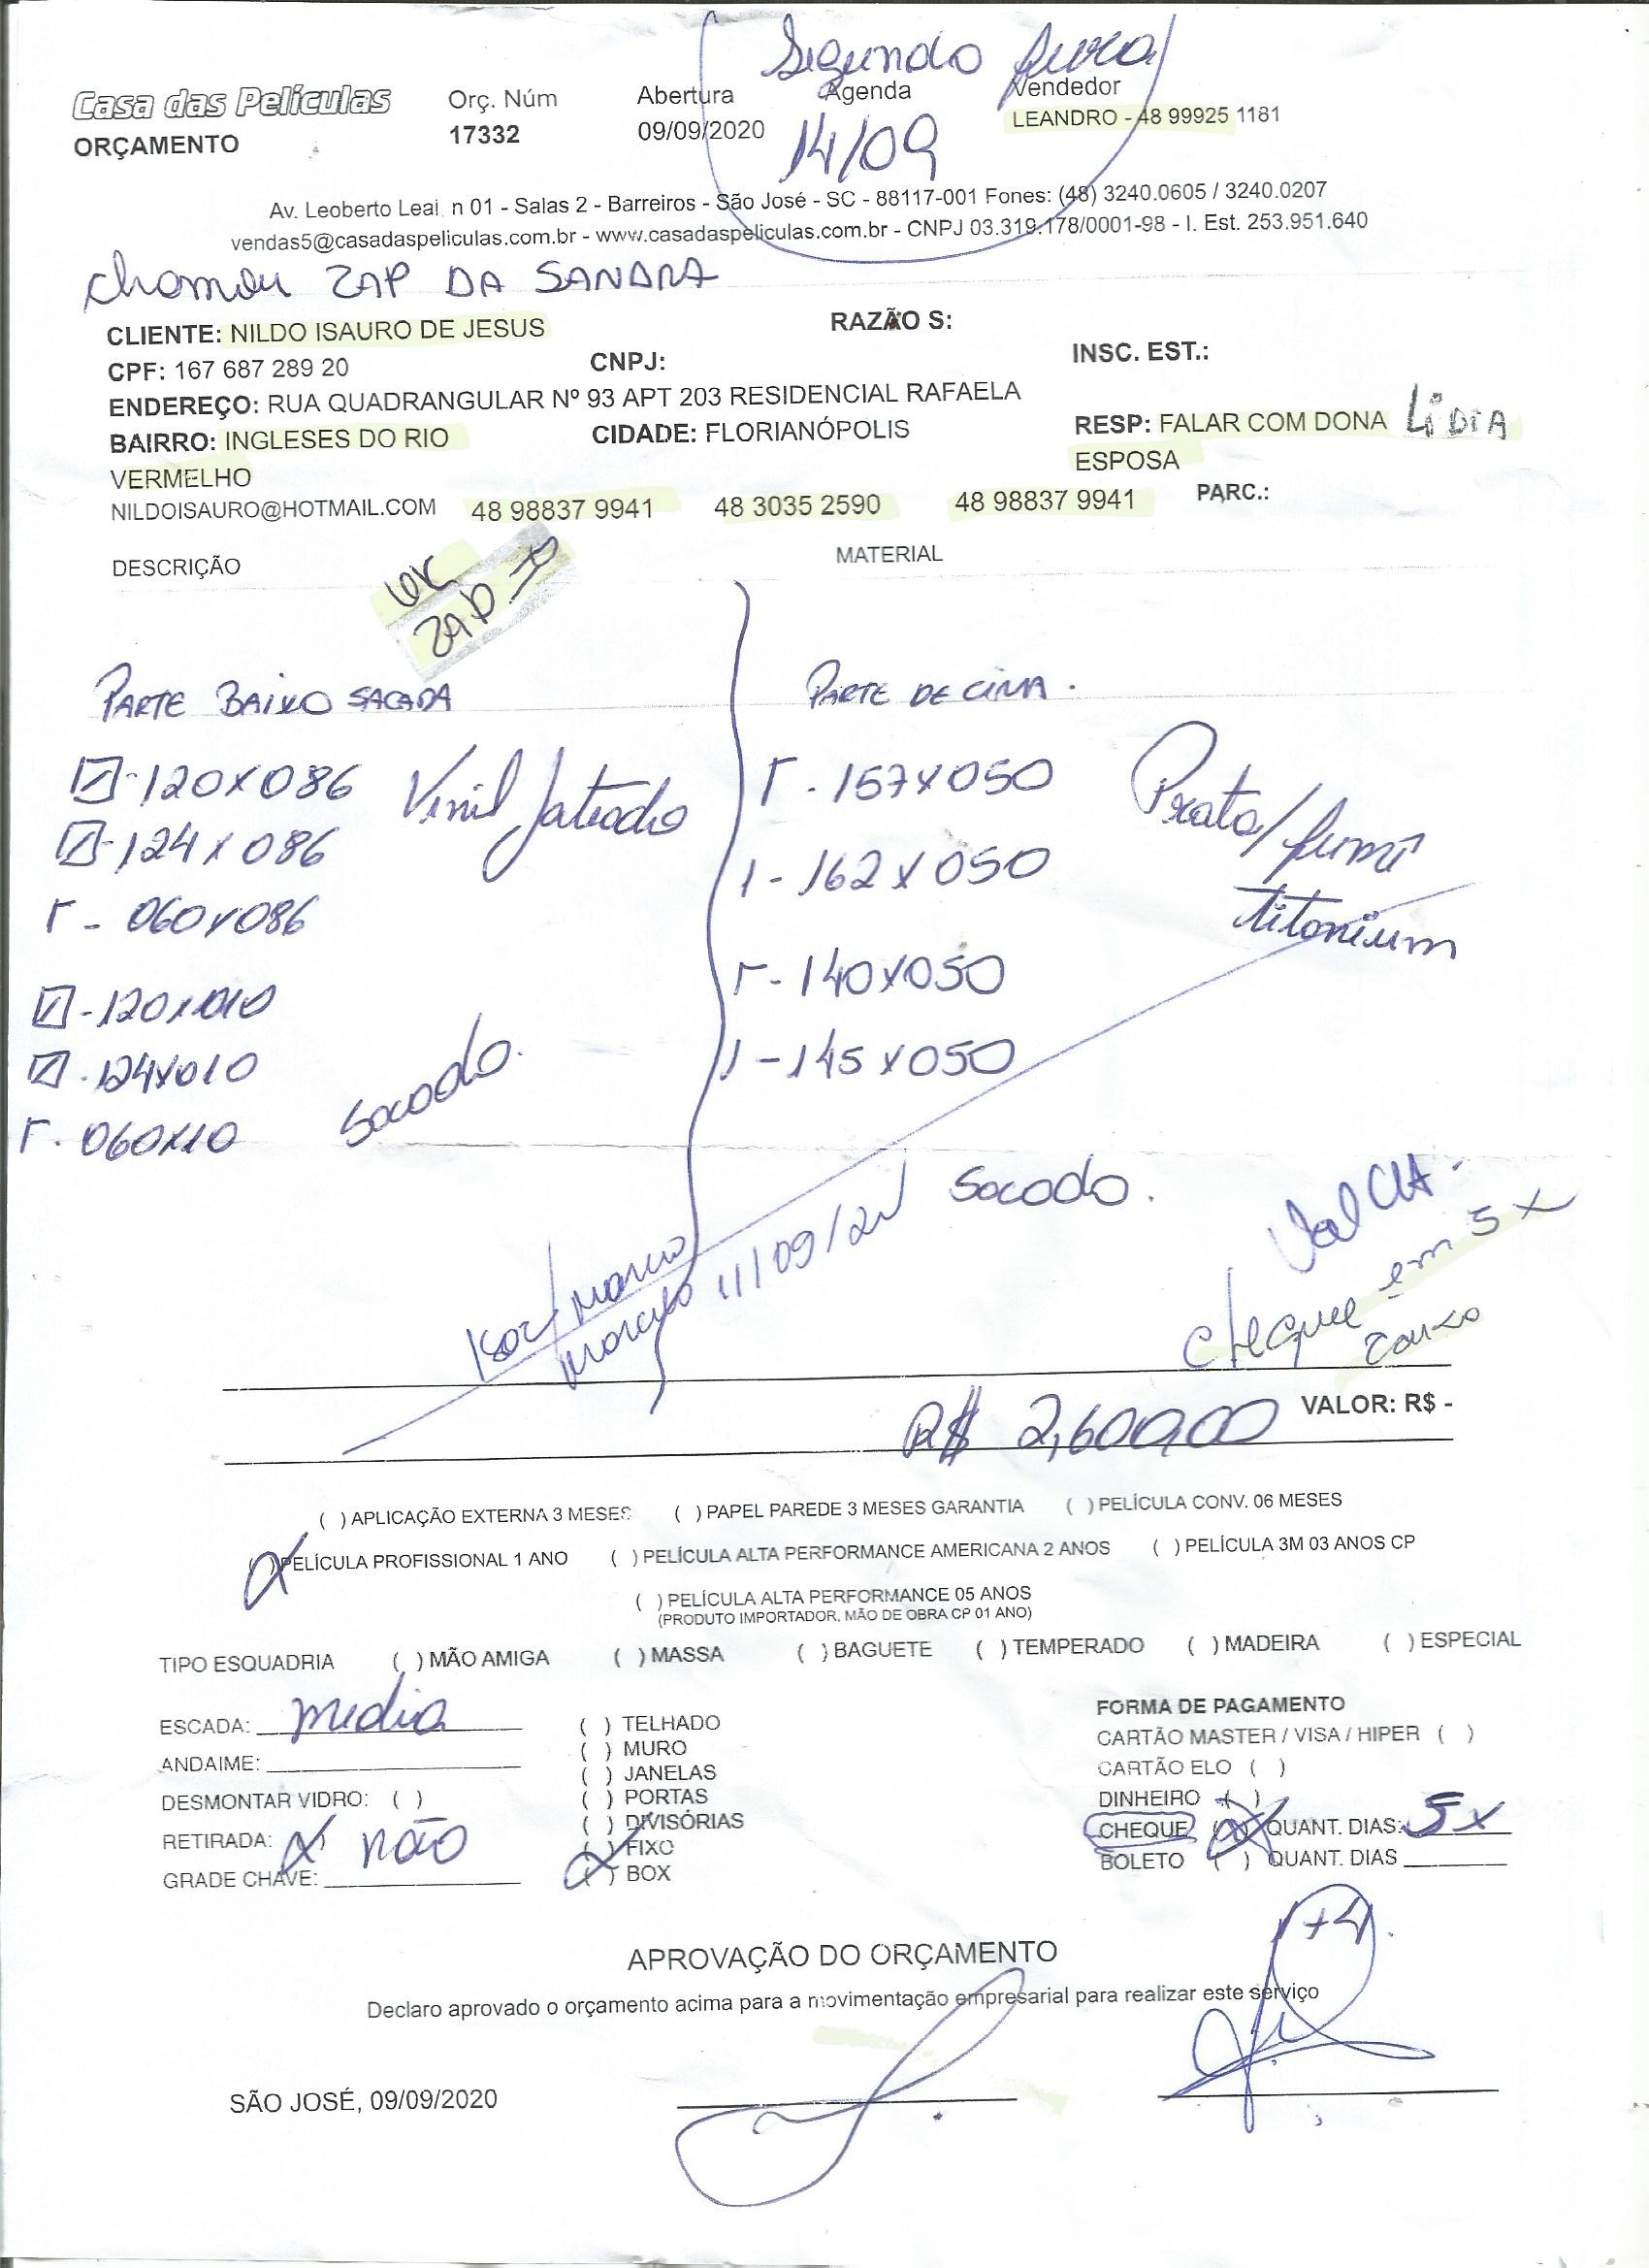 Segunda feira
Casa das Películas Orç. Núm Abertura Agenda Vendedor
ORÇAMENTO 17332 09/09/2020 14/09 LEANDRO - 48 99925 1181
Av. Leoberto Leal n 01 - Salas 2 - Barreiros - São José - SC - 88117-001 Fones: (48) 3240.0605 / 3240.0207
vendas5@casadaspeliculas.com.br - www.casadaspeliculas.com.br - CNPJ 03.319.178/0001-98 - I. Est. 253.951.640
chamou ZAP DA SANDRA
CLIENTE: NILDO ISAURO DE JESUS RAZÃO S:
CPF: 167 687 289 20 CNPJ: INSC. EST.:
ENDEREÇO: RUA QUADRANGULAR Nº 93 APT 203 RESIDENCIAL RAFAELA
BAIRRO: INGLESES DO RIO CIDADE: FLORIANÓPOLIS RESP: FALAR COM DONA LiDiA
VERMELHO ESPOSA
NILDOISAURO@HOTMAIL.COM 48 98837 9941 48 3035 2590 48 98837 9941 PARC.:
DESCRIÇÃO MATERIAL
ok
ZAP
PARTE BAIXO SACADA PARTE DE CIMA.
1-120x086 Vinil Jateado 1-157x050 Prata/fumê
1-124x086 1-162x050 titanium
1-060x086
1-120x010 1-140x050
1-124x010 1-145x050
1-060x10 Sacada.
Sacada.
11/09/20
cheque em 5x
R$ 2,600,00 VALOR: R$ -
( ) APLICAÇÃO EXTERNA 3 MESES ( ) PAPEL PAREDE 3 MESES GARANTIA ( ) PELÍCULA CONV. 06 MESES
(X) PELÍCULA PROFISSIONAL 1 ANO ( ) PELÍCULA ALTA PERFORMANCE AMERICANA 2 ANOS ( ) PELÍCULA 3M 03 ANOS CP
( ) PELÍCULA ALTA PERFORMANCE 05 ANOS
(PRODUTO IMPORTADOR, MÃO DE OBRA CP 01 ANO)
TIPO ESQUADRIA ( ) MÃO AMIGA ( ) MASSA ( ) BAGUETE ( ) TEMPERADO ( ) MADEIRA ( ) ESPECIAL
ESCADA: media
ANDAIME:
DESMONTAR VIDRO: ( )
RETIRADA: (X) não
GRADE CHAVE:
( ) TELHADO
( ) MURO
( ) JANELAS
( ) PORTAS
( ) DIVISÓRIAS
(X) FIXO
( ) BOX
FORMA DE PAGAMENTO
CARTÃO MASTER / VISA / HIPER ( )
CARTÃO ELO ( )
DINHEIRO ( )
CHEQUE (X) QUANT. DIAS: 5x
BOLETO ( ) QUANT. DIAS
1+4.
APROVAÇÃO DO ORÇAMENTO
Declaro aprovado o orçamento acima para a movimentação empresarial para realizar este serviço
SÃO JOSÉ, 09/09/2020